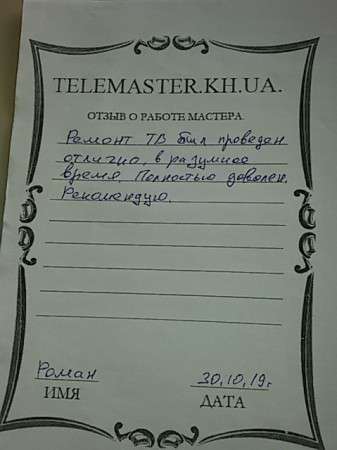 TELEMASTER.KH.UA.
ОТЗЫВ О РАБОТЕ МАСТЕРА
Ремонт ТВ был проведен
отлично, в разумное
время. Полностью доволен.
Рекомендую.
Роман 30,10,19г
ИМЯ ДАТА